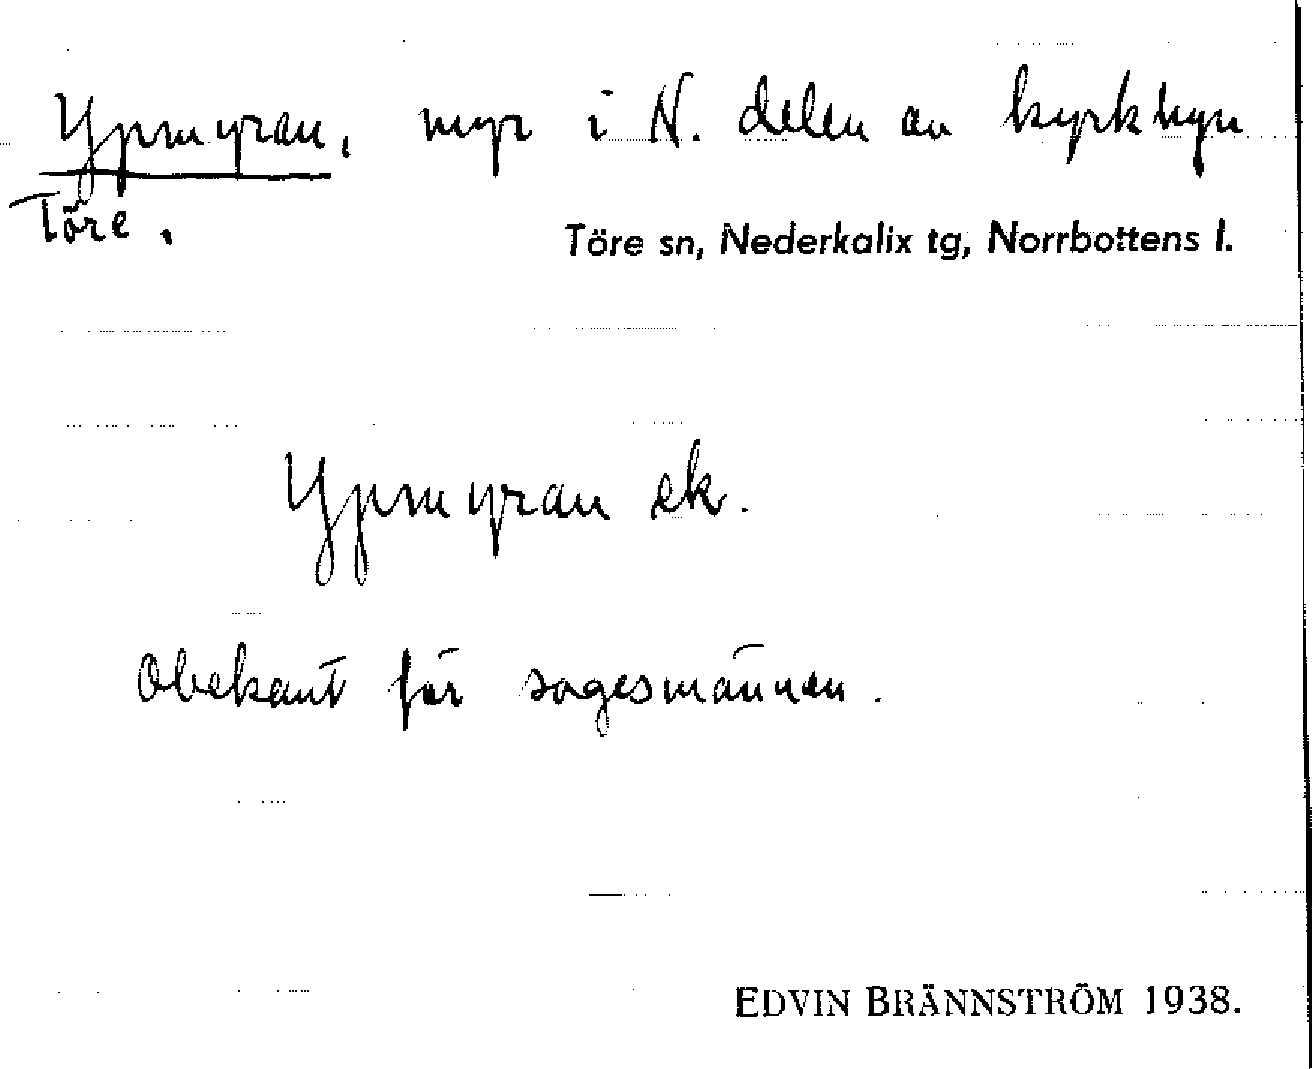 Ypmyran, myr i N. delen av kyrkbyn
Töre.
Töre sn, Nederkalix tg, Norrbottens l.
Ypmyran ek.
Obekant för sagesmännen.
EDVIN BRÄNNSTRÖM 1938.